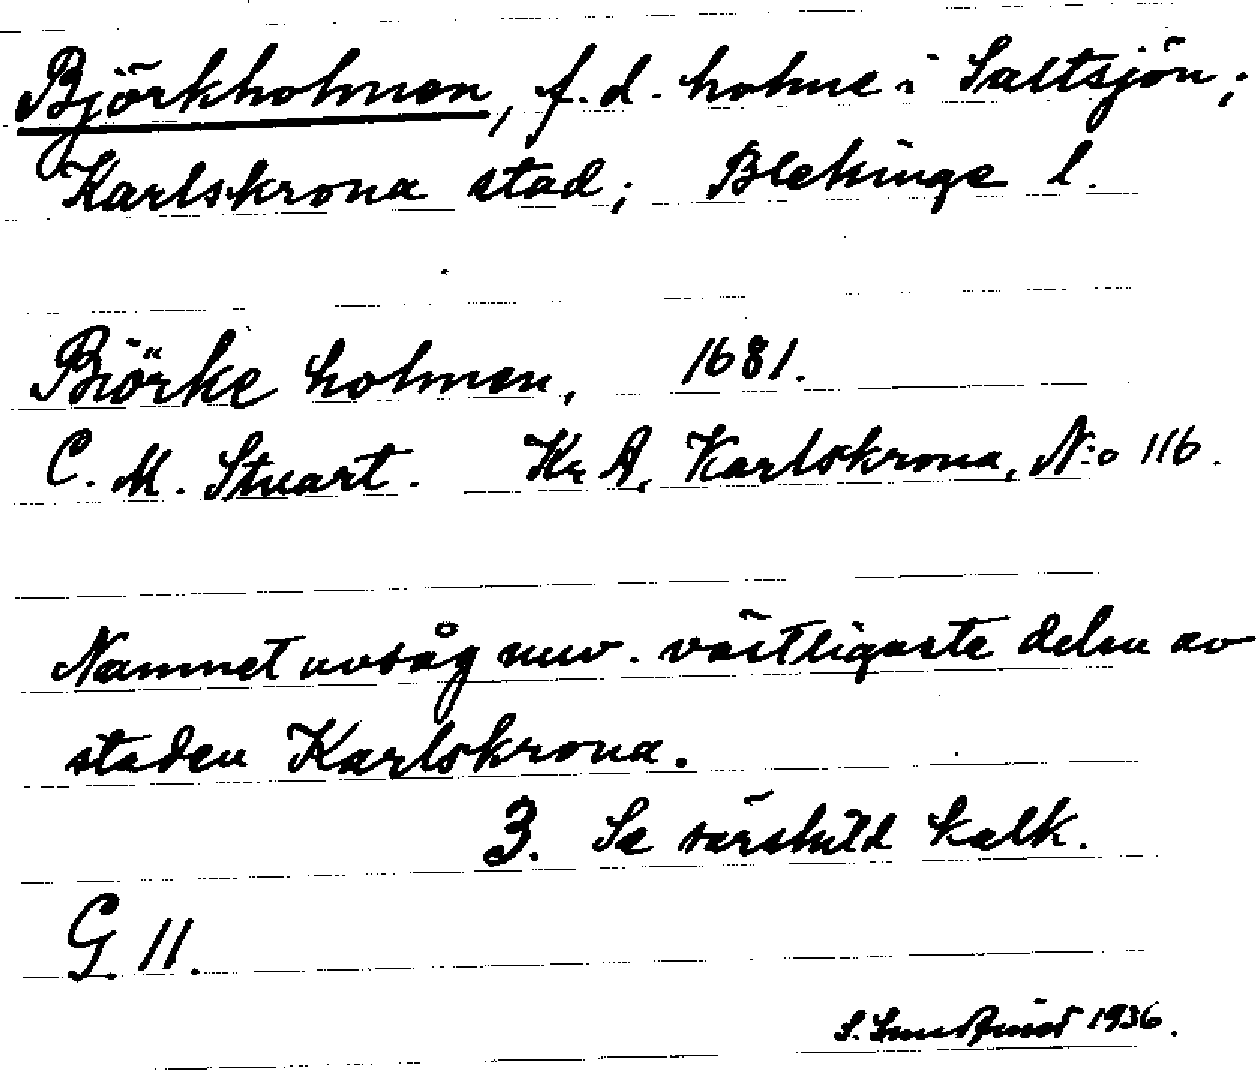 Björkholmen, f. d. holme i Saltsjön;
Karlskrona stad; Blekinge l.
Biörke holmen, 1681.
C. M. Stuart. Kr. A. Karlskrona, N:o 116.
Namnet avsåg nuv. västligaste delen av
staden Karlskrona.
3. Se särskild kalk.
G 11.
S. 1936.